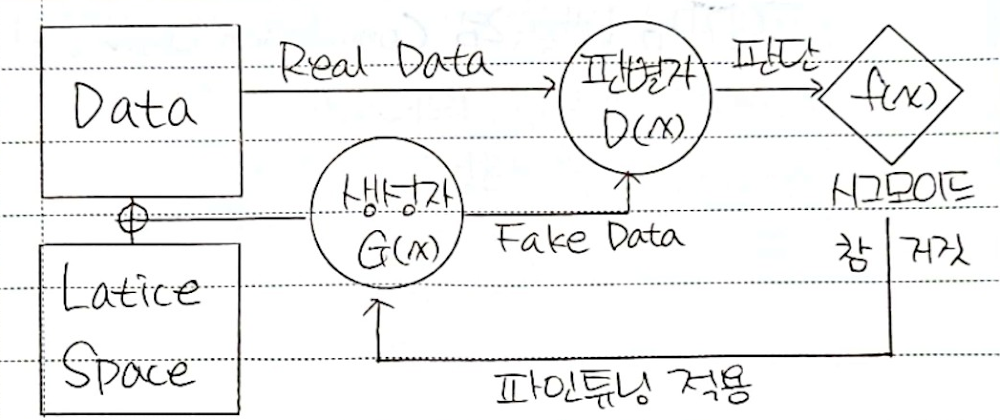 Data
Real Data
판별자
D(x)
판단
f(x)
시그모이드
참
거짓
생성자
G(x)
Fake Data
Latice
Space
파인튜닝 적용